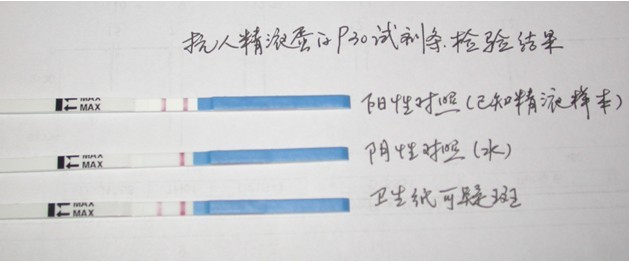 抗人精液蛋白P30试剂条检验结果
MAX
MAX
阳性对照(已知精液样本)
MAX
MAX
阴性对照(水)
MAX
MAX
卫生纸可疑斑